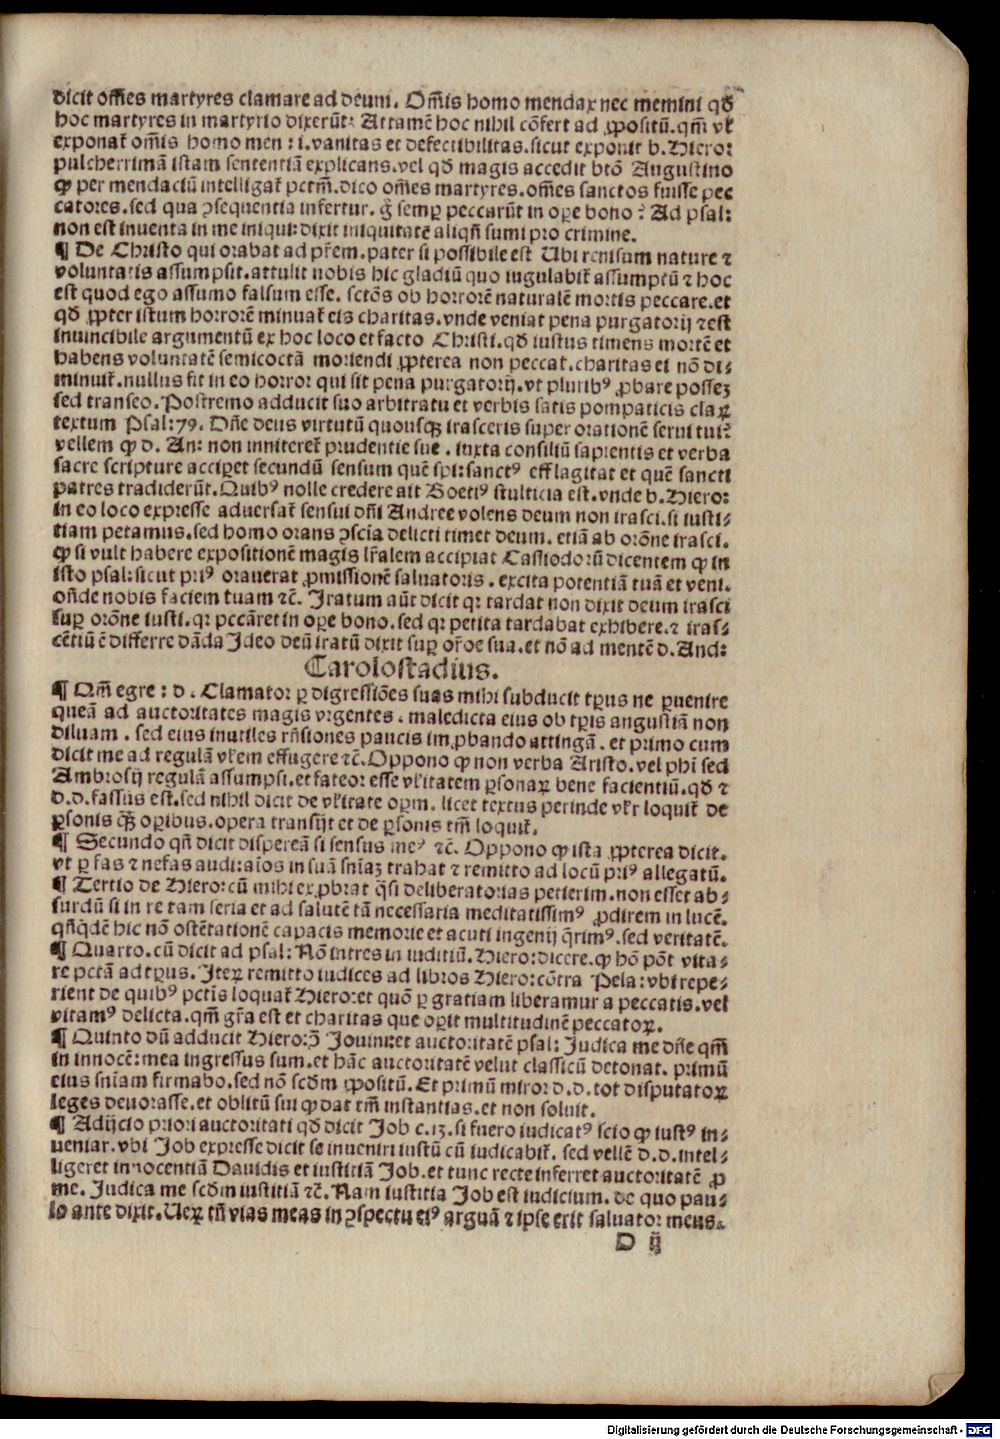 dicit om̄es martyres clamare ad deum. Om̄is homo mendax nec memini qđ
hoc martyres in martyrio dixerūt: Attamē hoc nihil cōfert ad ꝓpositū. qm̄ vł
exponat᷑ om̄is homo men: i. vanitas et defectibilitas. sicut exponit b. Hiero:
pulcherrimā istam sententiā explicans. vel qđ magis accedit btō Augustino
ꝙ per mendaciū intelligat᷑ pctm̄. dico om̄es martyres. om̄es sanctos fuisse pec
catores. sed qua ꝯsequentia infertur. g̊ semꝑ peccarūt in oꝑe bono: Ad psal:
non est inuenta in me iniqui: dixit iniquitatē aliqn̄ sumi pro crimine.
¶ De Christo qui orabat ad pr̄em. pater si possibile est Ubi renisum nature ⁊
voluntatis assumpsit. attulit nobis hic gladiū quo iugulabit᷑ assumptū ⁊ hoc
est quod ego assumo falsum esse. sctōs ob horrorē naturalē mortis peccare. et
qđ ꝓpter istum horrorē minuat᷑ eis charitas. vnde veniat pena purgatorij ⁊ est
inuincibile argumentū ex hoc loco et facto Christi. qđ iustus timens mortē et
habens voluntatē semicoctā moriendi ꝓpterea non peccat. charitas ei nō di⸗
minuit᷑. nullus fit in eo horror qui sit pena purgatorij. vt pluribꝰ ꝓbare possez
sed transeo. Postremo adducit suo arbitratu et verbis satis pompaticis claꝝ
textum Psal: 79. Dn̄e deus virtutū quousqꝫ irasceris super orationē serui tui:
vellem ꝙ d. An: non inniteret᷑ prudentie sue. iuxta consiliū sapientis et verba
sacre scripture acciꝑet secundū sensum quē spi: sanctꝰ efflagitat et quē sancti
patres tradiderūt. Quibꝰ nolle credere ait Boetiꝰ stulticia est. vnde b. Hiero:
in eo loco expresse aduersat᷑ sensui dn̄i Andree volens deum non irasci. si iusti⸗
tiam petamus. sed homo orans ꝯscīa delicti timet deum. etiā ab orōne irasci.
ꝙ si vult habere expositionē magis lr̄alem accipiat Cassiodorū dicentem ꝙ in
isto psal: sicut priꝰ orauerat ꝓmissionē saluatoris. excita potentiā tuā et veni.
on̄de nobis faciem tuam ⁊c̄. Iratum aūt dicit qꝛ tardat non dixit deum irasci
suꝑ orōne iusti. qꝛ peccāret in oꝑe bono. sed qꝛ petita tardabat exhibere. ⁊ iras⸗
cētiū ē differre dāda Ideo deū iratū dixit suꝑ or̄oe sua. et nō ad mentē d. And:
Carolostadius.
¶ Qm̄ egre: d. Clamator ꝑ digressiōes suas mihi subducit tp̄us ne ꝑuenire
queā ad auctoritates magis vrgentes. maledicta eius ob tp̄is angustiā non
diluam. sed eius inutiles rn̄siones paucis imꝓbando attingā. et primo cum
dicit me ad regulā vłem effugere ⁊c̄. Oppono ꝙ non verba Aristo. vel phi sed
Ambrosij regulā assumpsi. et fateor esse vłitatem ꝑsonaꝝ bene facientiū. qđ ⁊
d. d. fassus est. sed nihil dicit de vłitate oꝑm. licet textus perinde vłr loquit᷑ de
ꝑsonis qꝫ oꝑibus. opera transijt et de ꝑsonis tm̄ loquit᷑.
¶ Secundo qn̄ dicit dispereā si sensus meꝰ ⁊c̄. Oppono ꝙ ista ꝓpterea dicit.
vt ꝑ fas ⁊ nefas audi: aīos in suā sn̄iaꝫ trahat ⁊ remitto ad locū priꝰ allegatū.
¶ Tertio de Hiero: cū mihi exꝓbrat qsi deliberatorias petierim. non esset ab⸗
surdū si in re tam seria et ad salutē tā necessaria meditatissimꝰ ꝓdirem in lucē.
qn̄qdē hic nō ostētationē capacis memorie et acuti ingenij qrimꝰ. sed veritatē.
¶ Quarto. cū dicit ad psal: Nō intres in iuditiū. Hiero: dicere. ꝙ hō pōt vita⸗
re pctā ad tp̄us. Iteꝝ remitto iudices ad libros Hiero: cōtra Pela: vbi repe⸗
rient de quibꝰ pctīs loquat᷑ Hiero: et quō ꝑ gratiam liberamur a peccatis. vel
vitamꝰ delicta. qm̄ gr̄a est et charitas que oꝑit multitudinē peccatoꝝ.
¶ Quinto dū adducit Hiero: ꝯ̄ Jouini: et auctoritatē psal: Judica me dn̄e qm̄
in innocē: mea ingressus sum. et hāc auctoritatē velut classicū detonat. primū
eius sn̄iam firmabo. sed nō scd̄m ꝓpositū. Et primū miror d. d. tot disputatoꝝ
leges deuorasse. et oblitū sui ꝙ dat tm̄ instantias. et non soluit.
¶ Adijcio priori auctoritati qđ dicit Job c. 13. si fuero iudicatꝰ scio ꝙ iustꝰ in⸗
ueniar. vbi Job expresse dicit se inueniri iustū cū iudicabit᷑. sed vellē d. d. intel⸗
ligeret innocentiā Dauidis et iustitiā Job. et tunc recte inferret auctoritatē ꝓ
me. Judica me scd̄m iustitiā ⁊c̄. Nam iustitia Job est iudicium. de quo pau⸗
lo ante dixit. Ueꝝ tn̄ vias meas in ꝯspectu eiꝰ arguā ⁊ ipse erit saluator meus.
D ij
Digitalisierung gefördert durch die Deutsche Forschungsgemeinschaft - DFG